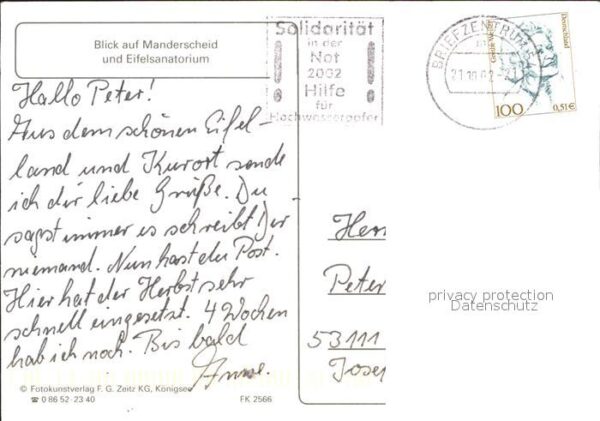 Blick auf Manderscheid
und Eifelsanatorium
Hallo Peter!
Aus dem schönen Eifel-
land und Kurort sende
ich dir liebe Grüße. Du
sagst immer es schreibt Dir
niemand. Nun hast du Post.
Hier hat der Herbst sehr
schnell eingesetzt. 4 Wochen
hab ich noch. Bis bald
Anne.
© Fotokunstverlag F. G. Zeitz KG, Königsee
☎ 0 86 52 - 23 40
FK 2566
Solidarität
in der
Not
2002
Hilfe
für
Hochwasseropfer
BRIEFZENTRUM
Deutschland
100
0,51€
Herr
Peter
53111
Jose
privacy protection
Datenschutz